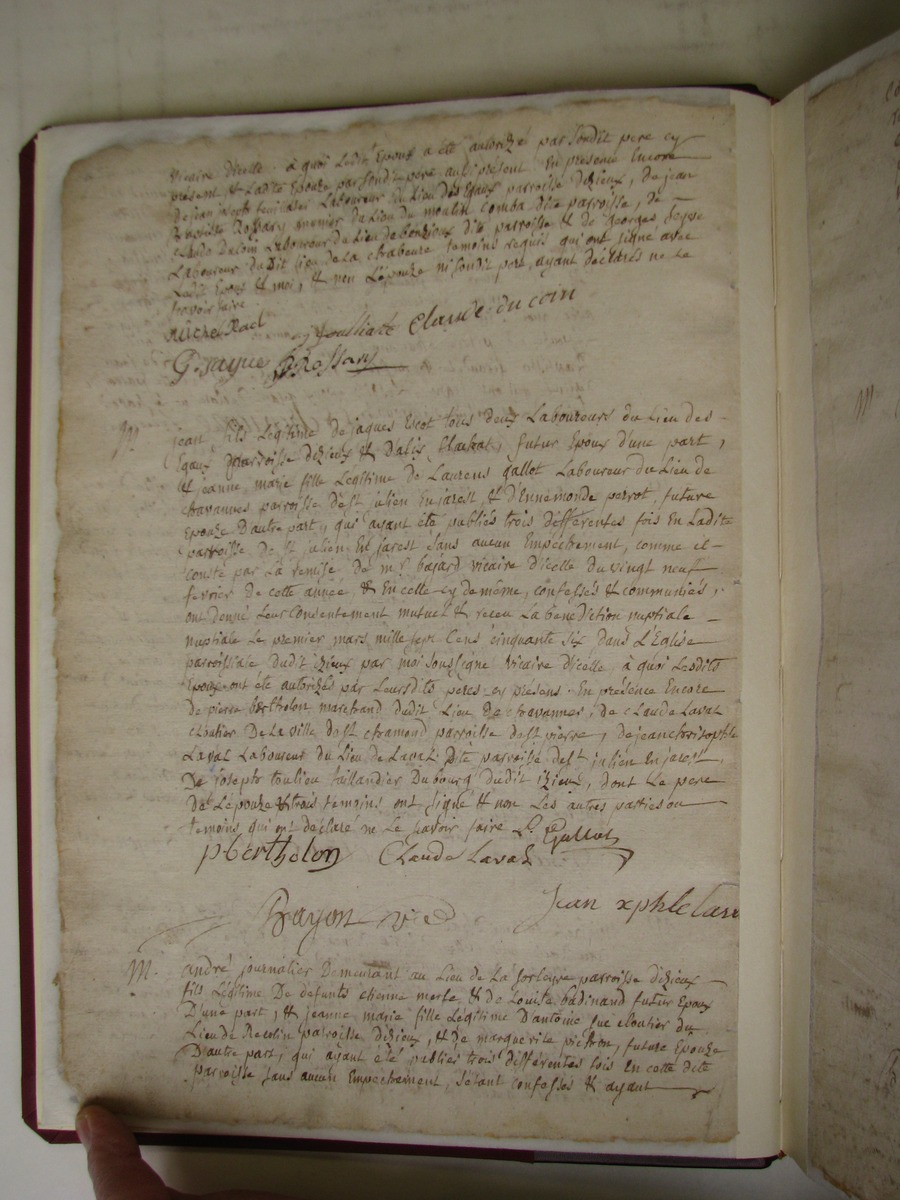 vicaire d'icelle. à quoi Ledit Epoux a été autorizé par sondit pere cy
présent & Ladite Epouze par sondit pere aussi présent. En presence Encore
de jean jacob feuillades Laboureur du Lieu des Egaux parroisse d'izieux, de jean
Baptiste Rossary munier du Lieu du moulin Comba dite parroisse, de
Claude Ducoin Laboureur du Lieu de dite parroisse & de Georges
Laboureur dudit Lieu de La Chabeure temoins requis qui ont signé avec
Ledit Epoux & moi, & non L'épouze ni sondit pere, ayant déclarés ne le
sçavoir faire.
Claude ducoin
G. Rossary
M jean fils Légitime de jaques Escot tous deux Laboureurs du Lieu des
Egaux parroisse d'izieux & d'alis flachat, futur Epoux d'une part,
& jeanne marie fille Légitime de Laurens gallot Laboureur du Lieu de
chavannes parroisse de st julien En jarest & d'Ennemonde perrot, future
Epouze D'autre part, qui ayant été publiés trois différentes fois En Ladite
parroisse de st julien En jarest sans aucun Empéchement, comme il
conste par La remise de mr. bajard vicaire d'icelle du vingt neuf
fevrier de cette année, & En celle cy de même, confessés & communiés,
ont donné Leur consentement mutuel & receu La bénédiction nuptiale
nuptiale Le premier mars mille sept Cens cinquante six dans L'Eglise
parroissiale dudit izieux par moi soussigné vicaire d'icelle à quoi Lesdits
Epoux ont été autorizés par Leursdits peres cy présens. En présence Encore
de pierre bertholon marchand dudit Lieu de chavannes, de Claude Laval
Cloutier De La ville de st chamond parroisse de st pierre, de jean christophle
Laval Laboureur du Lieu de Laval dite parroisse de st julien En jarest,
De joseph toulieu taillandier Du bourg dudit izieux, dont Le pere
de L'épouze & trois temoins ont signé & non Les autres parties ou
temoins qui ont déclaré ne Le sçavoir faire L. Gallot
p. bertholon Claude Laval
Bayon vic Jean xphle Laval
M. andré journalier Demeurant au Lieu de La parroisse d'izieux
fils Légitime De défunts etienne morle & de Louise badinand futur Epoux
D'une part, & jeanne marie fille Légitime D'antoine fué cloutier du
Lieu de parroisse d'izieux, & de marguerite future Epouze
D'autre part, qui ayant été publiés trois différentes fois En cette dite
parroisse sans aucun Empéchement, s'étant confessés & ayant